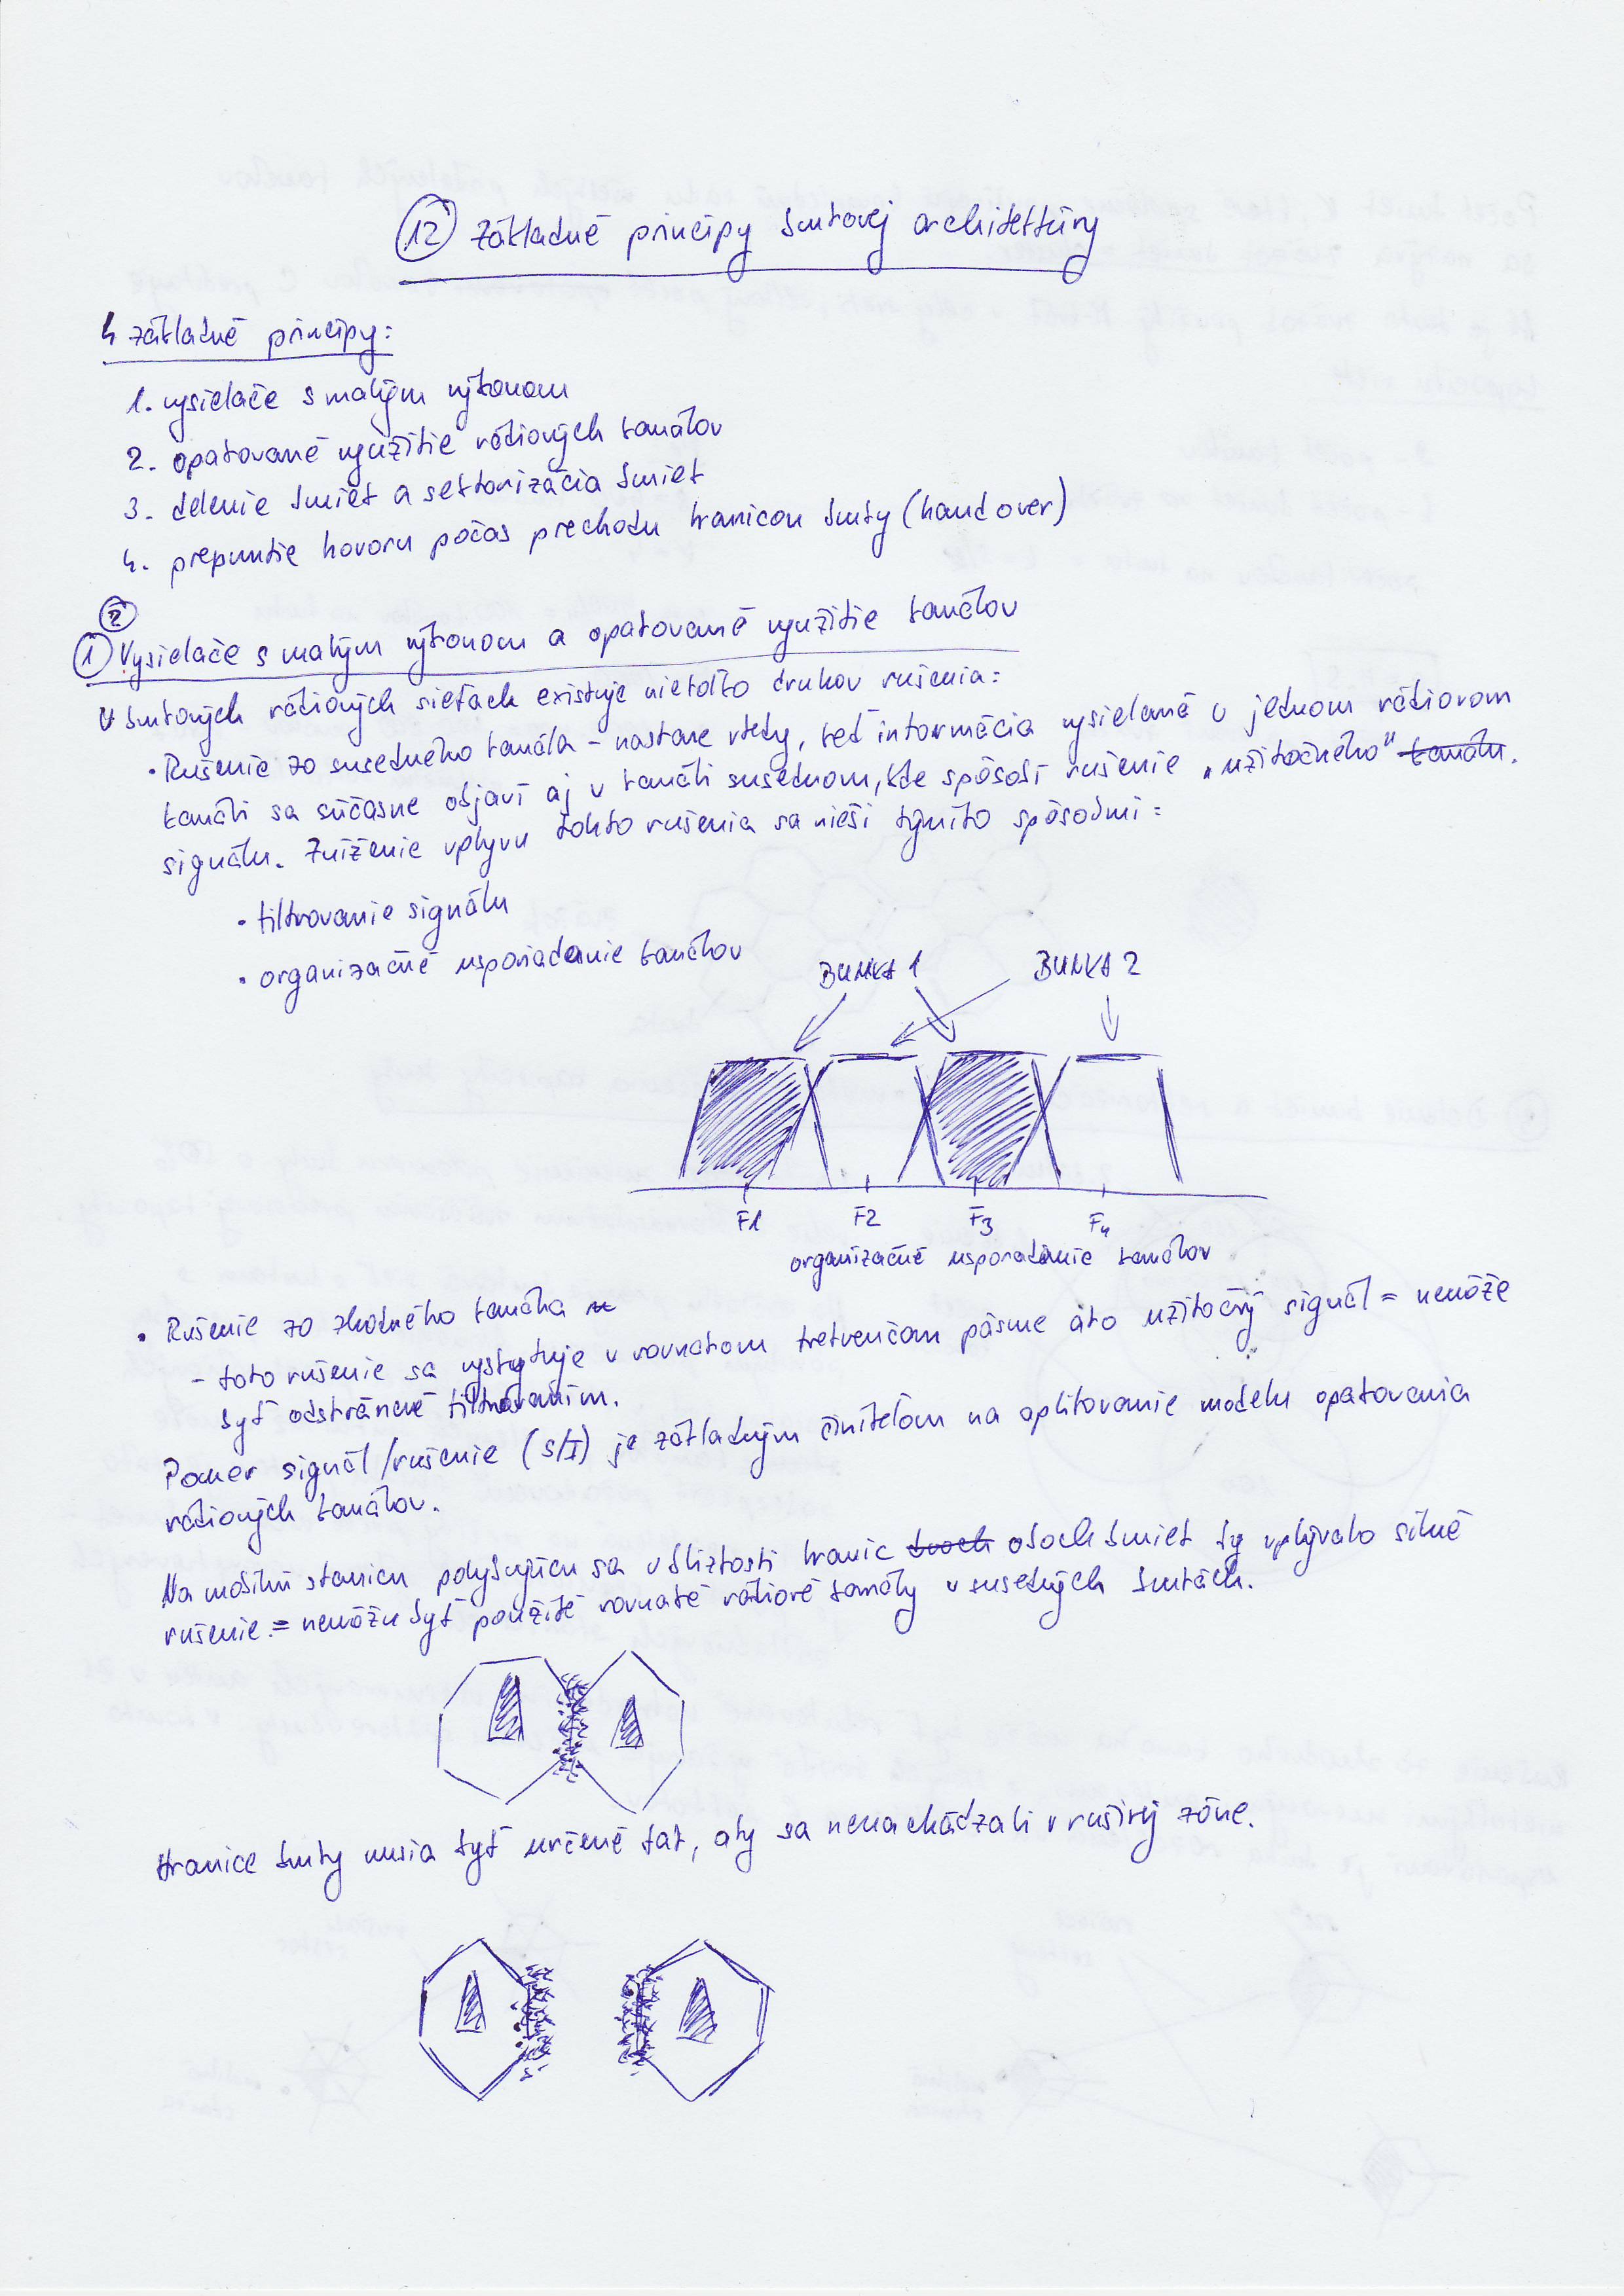 12 Základné princípy bunkovej architektúry
4 základné princípy:
1. vysielače s malým výkonom
2. opakované využitie rádiových kanálov
3. delenie buniek a sektorizácia buniek
4. prepnutie hovoru počas prechodu hranicou bunky (hand over)
2
1 Vysielače s malým výkonom a opakované využitie kanálov
V bunkových rádiových sieťach existuje niekoľko druhov rušenia:
• Rušenie zo susedného kanála - nastane vtedy, keď informácia vysielaná v jednom rádiovom
kanáli sa súčasne objaví aj v kanáli susednom, kde spôsobí rušenie „užitočného" kanálu.
signálu. Zníženie vplyvu tohto rušenia sa rieši týmito spôsobmi:
• filtrovanie signálu
• organizačné usporiadanie kanálov
BUNKA 1 BUNKA 2
F1 F2 F3 F4
organizačné usporadanie kanálov
• Rušenie zo zhodného kanála
- toto rušenie sa vyskytuje v rovnakom frekvenčnom pásme ako užitočný signál = nemôže
byť odstránené filtrovaním.
Pomer signál/rušenie (S/I) je základným činiteľom na aplikovanie modelu opakovania
rádiových kanálov.
Na mobilnú stanicu pohybujúcu sa v blízkosti hraníc dvoch oboch buniek by vplývalo silné
rušenie = nemôžu byť použité rovnaké rádiové kanály v susedných bunkách.
Hranice bunky musia byť určené tak, aby sa nenachádzali v rušivej zóne.